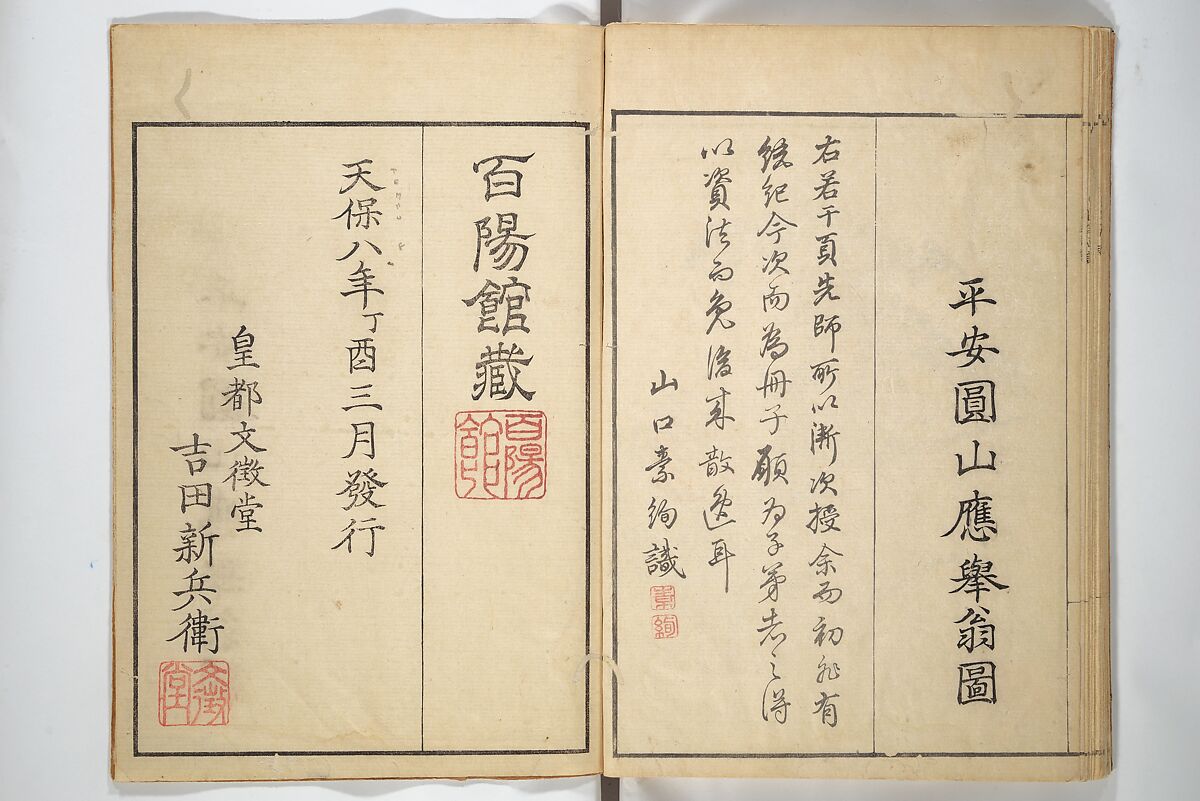 平安圓山應舉翁圖
右若干頁先師所以漸次授余而初非有
統紀今次而為冊子願為子弟者之得
以資法而免後来散逸耳
山口素絢識
素絢
百陽館蔵
百陽館
天保八年丁酉三月發行
皇都文徴堂
吉田新兵衛
文徴堂